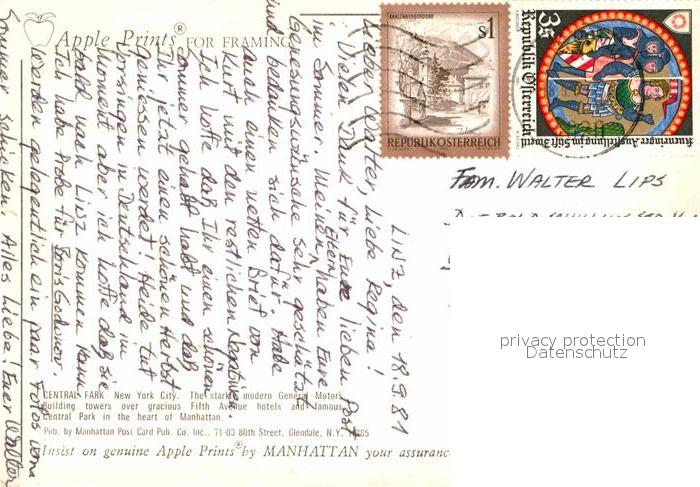 Apple Prints® FOR FRAMING
Linz, den 18.9.81
Liebe Walter, liebe Regina!
Vielen Dank für Eure lieben Post
im Sommer. Meine Eltern haben Eure
Genesungswünsche sehr geschätzt
und bedanken sich dafür. Habe
auch einen netten Brief von
Kurt mit den restlichen Negativen.
Ich hoffe daß Ihr einen schönen
Sommer gehabt habt und daß
Ihr jetzt einen schönen Herbst
geniessen werdet! Heide tut
vorsingen in Deutschland im
Moment aber ich hoffe daß sie
bald nach Linz kommen kann
Ich habe Probe für Boris Godunow.
Werden gelegentlich ein paar Fotos vom
Sommer schicken! Alles Liebe! Euer Walter
KAHLENBERGERDORF
S1
REPUBLIK ÖSTERREICH
3S
Republik Österreich
Kuenringer Ausstellung im Stift Zwettl
FAM. WALTER LIPS
privacy protection
Datenschutz
CENTRAL PARK New York City. The starkly modern General Motors
Building towers over gracious Fifth Avenue hotels and famous
Central Park in the heart of Manhattan.
Pub. by Manhattan Post Card Pub. Co. Inc., 71-03 80th Street, Glendale, N.Y. 11385
Insist on genuine Apple Prints® by MANHATTAN your assuranc